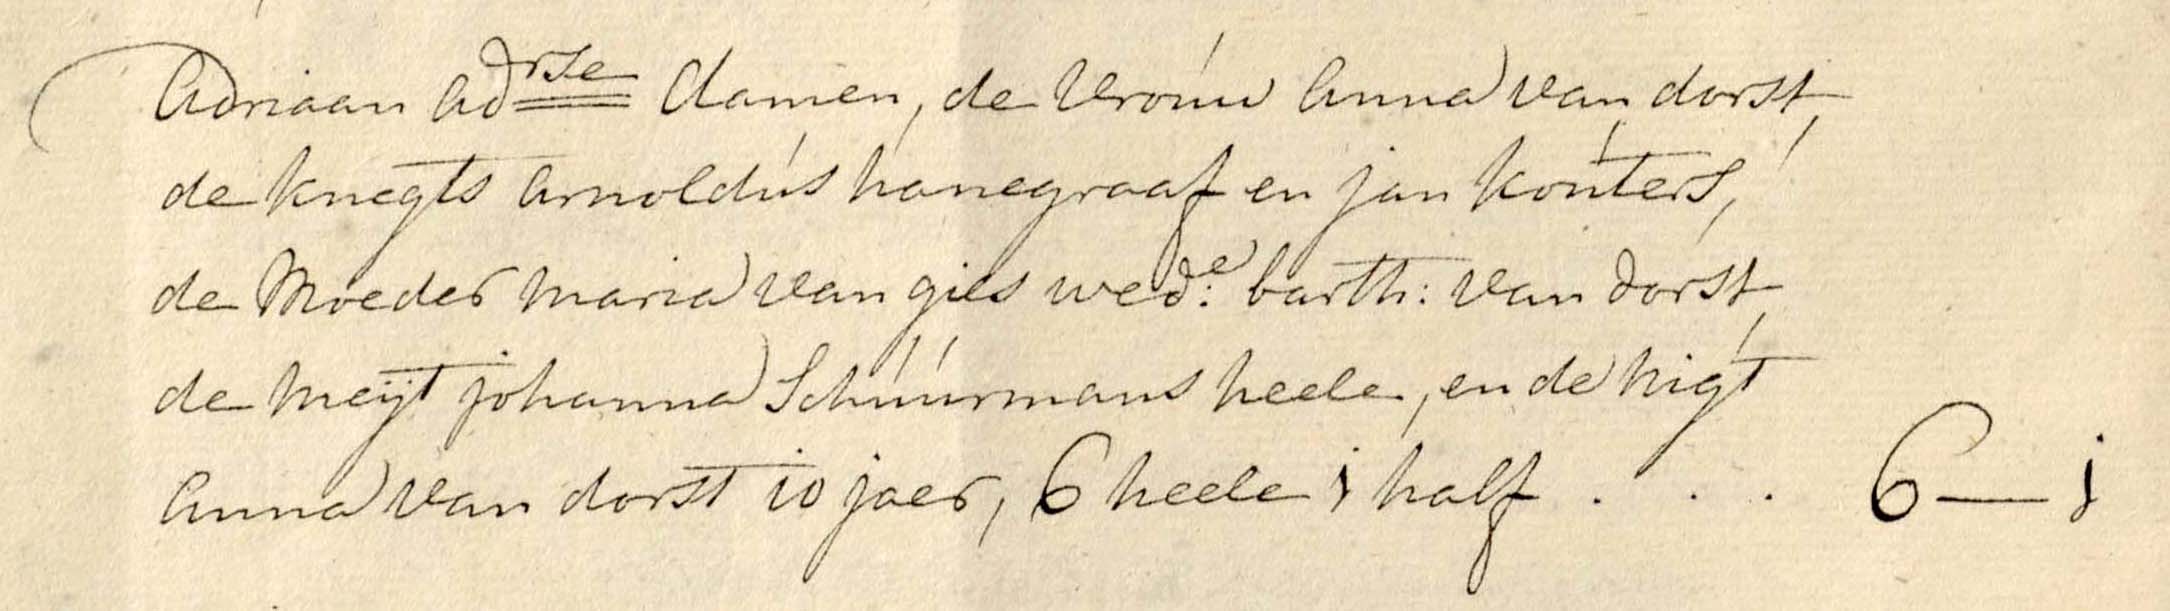 Adriaan Adrse Damen, de vrouw Anna van dorst,
de knegts Arnoldus hanegraaf en jan kouters,
de Moeder maria van gils wede: barth: van dorst,
de meijt johanna Schuurmans heele, en de nigt
Anna van dorst 10 jaer, 6 heele 1 half . . . 6 — 1